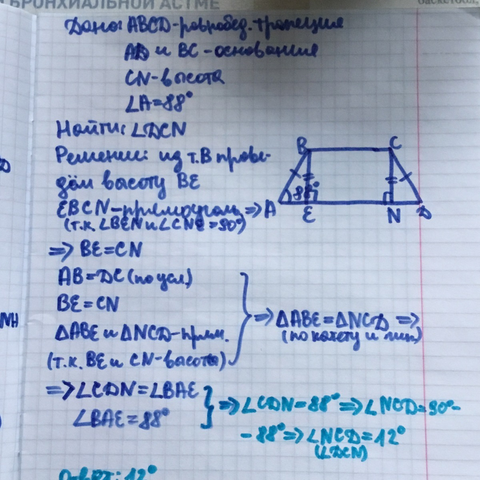 БРОНХИАЛЬНОЙ АСТМЕ
Дано: ABCD-равнобед. трапеция
AD и BC - основания
CN-высота
∠A=88°
Найти: ∠DCN
Решение: из т.B прове-
дём высоту BE
EBCN-прямоугольн. =>
(т.к. ∠BEN и ∠CNE = 90°)
=> BE=CN
AB=DC (по усл)
BE=CN
△ABE и △NCD-прям.
(т.к. BE и CN-высоты)
=> △ABE=△NCD =>
(по катету и гип.)
=> ∠CDN=∠BAE
∠BAE=88°
=> ∠CDN=88° => ∠NCD=90°-
-88° => ∠NCD=12°
(∠DCN)
Ответ: 12°
B C
A 88° E N D